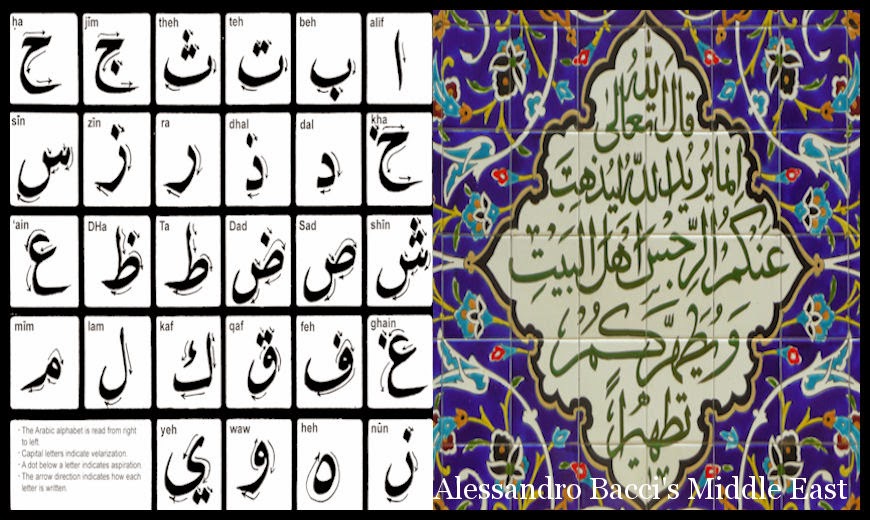 ha jîm theh teh beh alif
ا ب ت ث ج ح
sîn zîn ra dhal dal kha
خ د ذ ر ز س
'ain DHa Ta Dad Sad shîn
ش ص ض ط ظ ع
mîm lam kaf qaf feh ghain
غ ف ق ك ل م
yeh waw heh nûn
ن ه و ي
- The Arabic alphabet is read from right
to left.
- Capital letters indicate velarization.
- A dot below a letter indicates aspiration.
- The arrow direction indicates how each
letter is written.
قال الله تعالى
انما يريد الله ليذهب
عنكم الرجس اهل البيت
و يطهركم
تطهيرا
Alessandro Bacci's Middle East